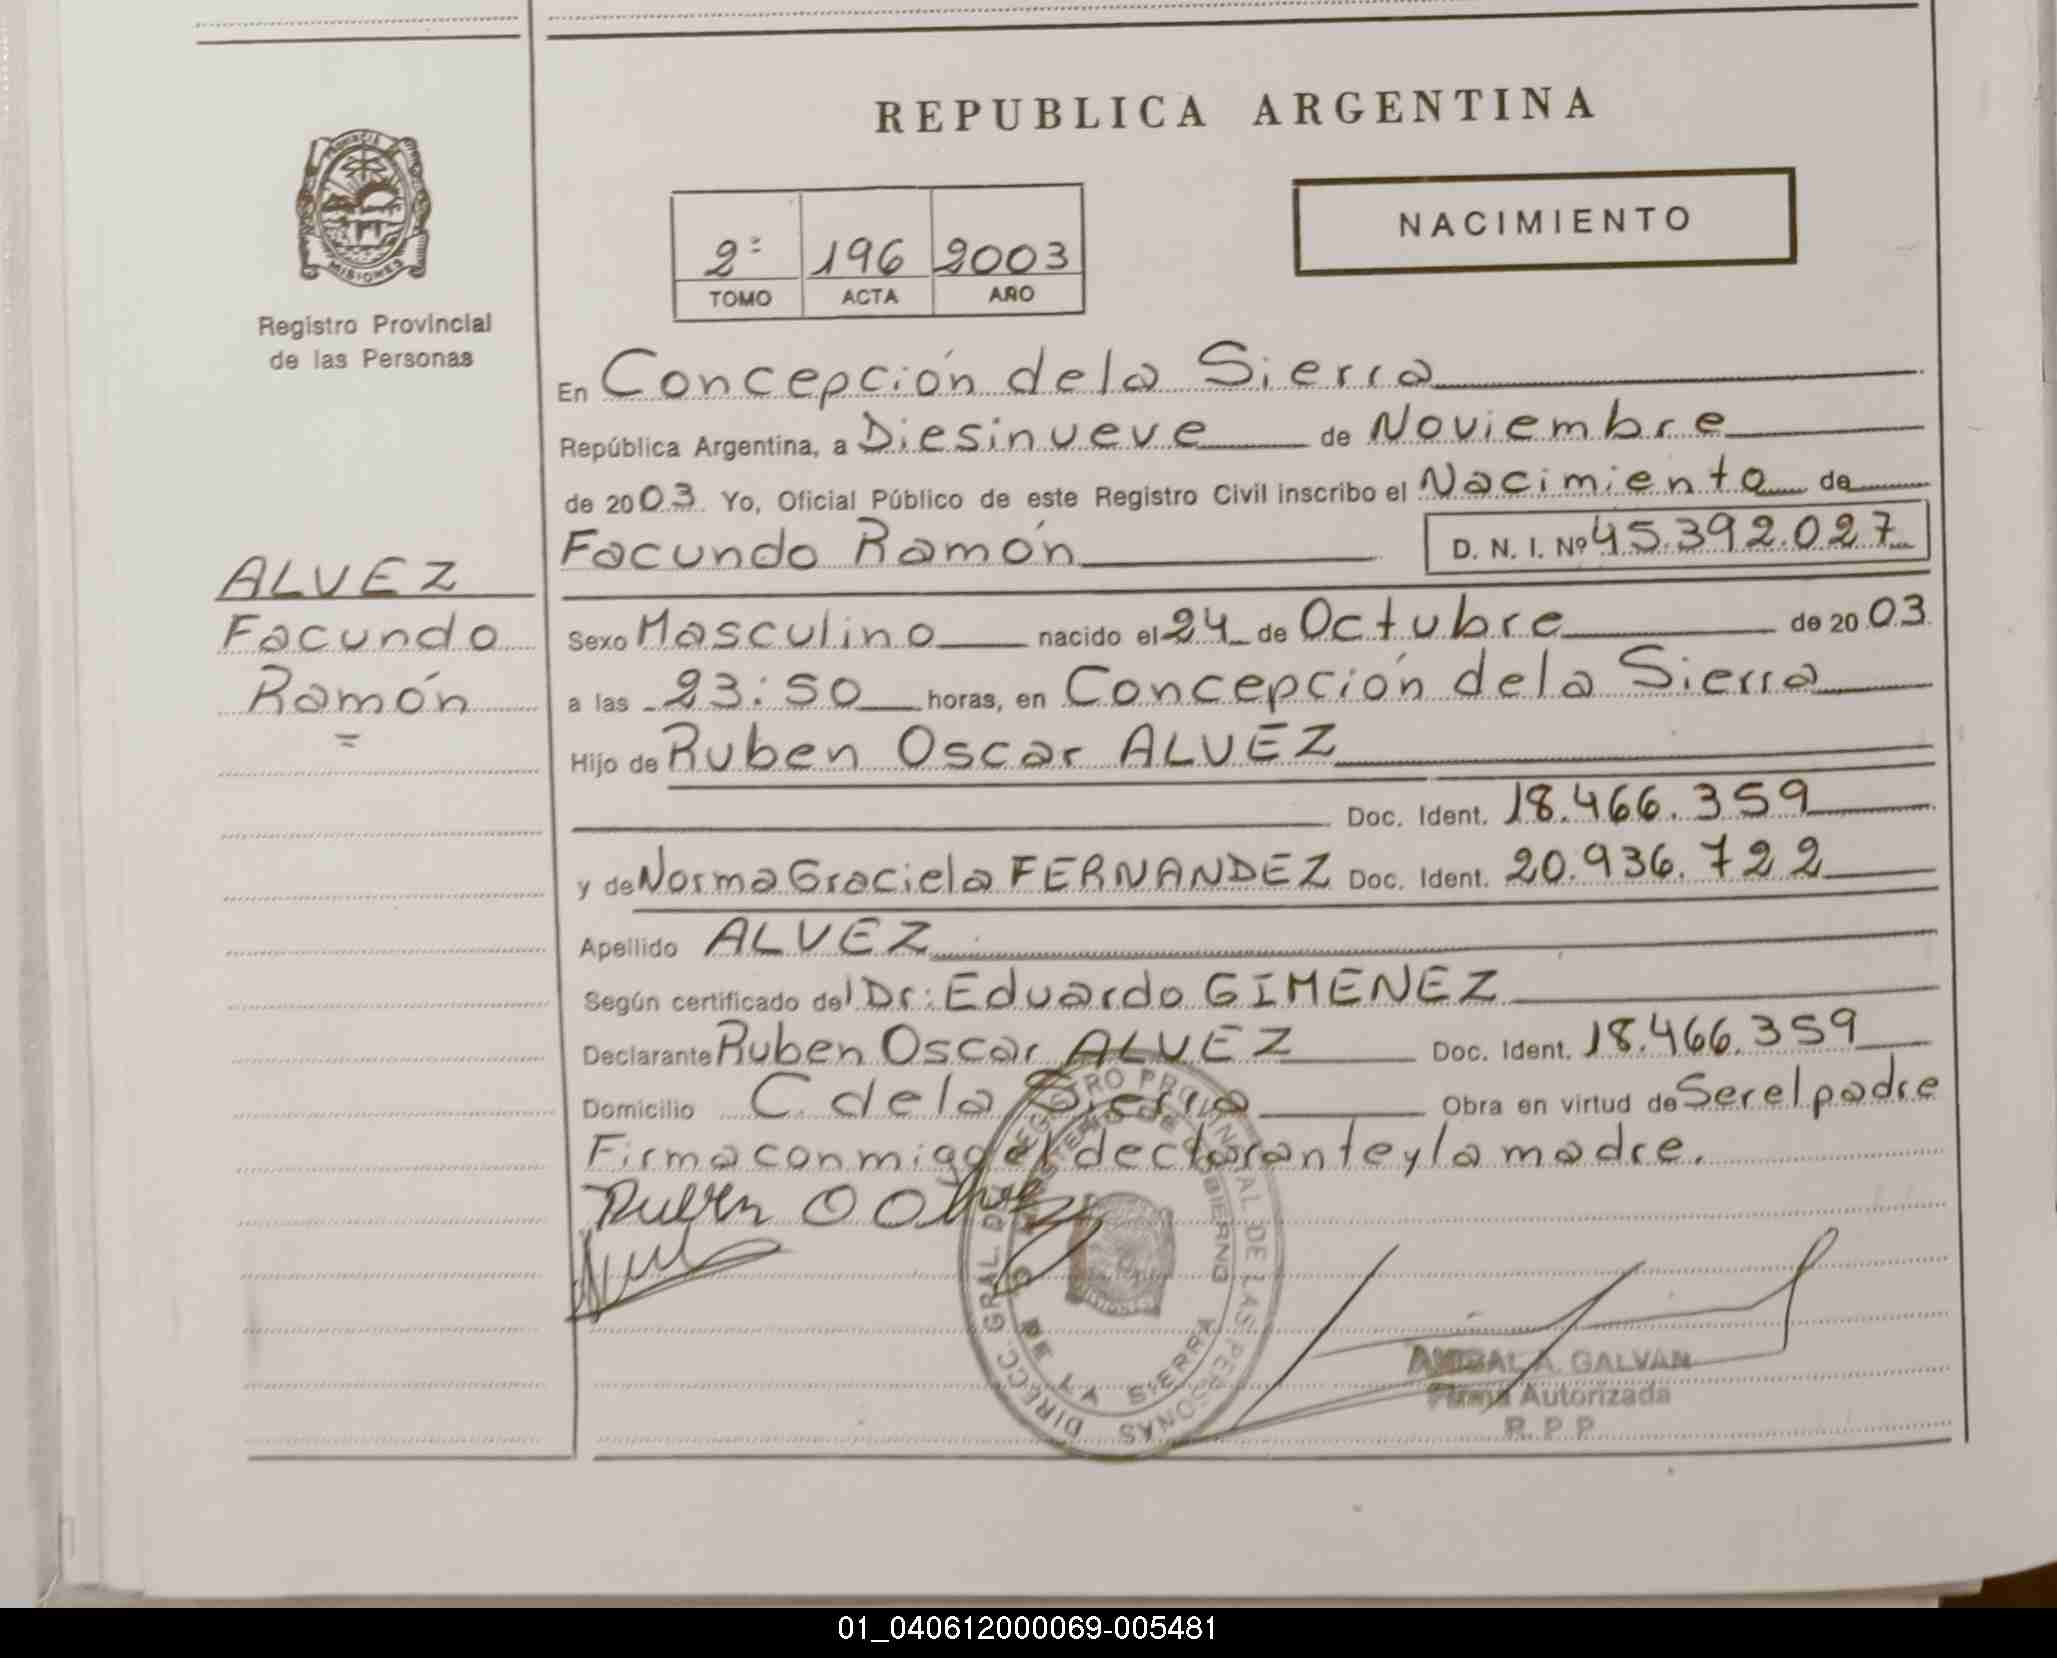 REPUBLICA ARGENTINA
PROVINCIA
MISIONES
Registro Provincial
de las Personas
2º 196 2003
TOMO ACTA AÑO
NACIMIENTO
En Concepción de la Sierra
República Argentina, a Diesinueve de Noviembre
de 2003. Yo, Oficial Público de este Registro Civil inscribo el Nacimiento de
Facundo Ramón D. N. I. Nº 45.392.027
ALVEZ
Facundo
Ramón
Sexo Masculino nacido el 24 de Octubre de 2003
a las 23:50 horas, en Concepción de la Sierra
Hijo de Ruben Oscar ALVEZ
Doc. Ident. 18.466.359
y de Norma Graciela FERNANDEZ Doc. Ident. 20.936.722
Apellido ALVEZ
Según certificado del Dr: Eduardo GIMENEZ
Declarante Ruben Oscar ALVEZ Doc. Ident. 18.466.359
Domicilio C. de la Sierra Obra en virtud de Ser el padre
Firma conmigo el declarante y la madre.
Ruben O
DIRECC. GRAL. DEL REGISTRO PROVINCIAL DE LAS PERSONAS
MINISTERIO DE GOBIERNO
DE LA SIERRA
ANIBAL A. GALVAN
Firma Autorizada
R. P. P.
01_040612000069-005481